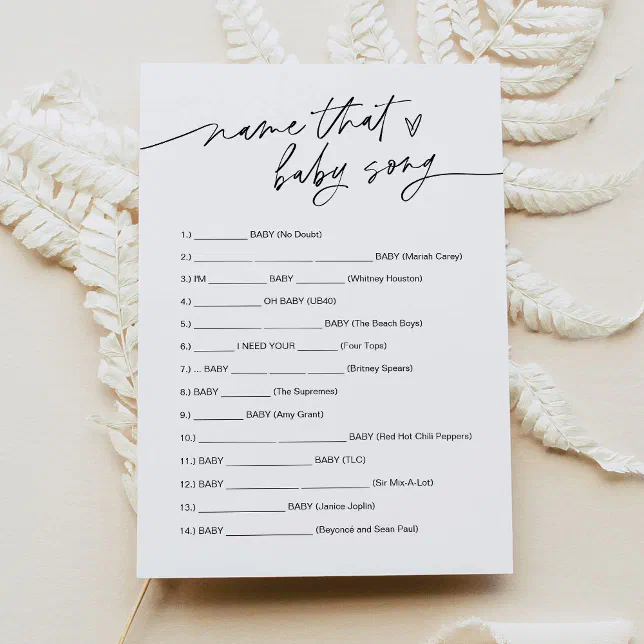 name that
baby song
1.) __________ BABY (No Doubt)
2.) __________ __________ __________ BABY (Mariah Carey)
3.) I'M __________ BABY ________ (Whitney Houston)
4.) ____________ OH BABY (UB40)
5.) ____________ __________ BABY (The Beach Boys)
6.) _______ I NEED YOUR _______ (Four Tops)
7.) ... BABY ______ ______ ______ (Britney Spears)
8.) BABY _________ (The Supremes)
9.) _________ BABY (Amy Grant)
10.) _____________ ____________ BABY (Red Hot Chili Peppers)
11.) BABY _______________ (TLC)
12.) BABY _____________ ____________ (Sir Mix-A-Lot)
13.) _______________ BABY (Janice Joplin)
14.) BABY _______________ (Beyoncé and Sean Paul)